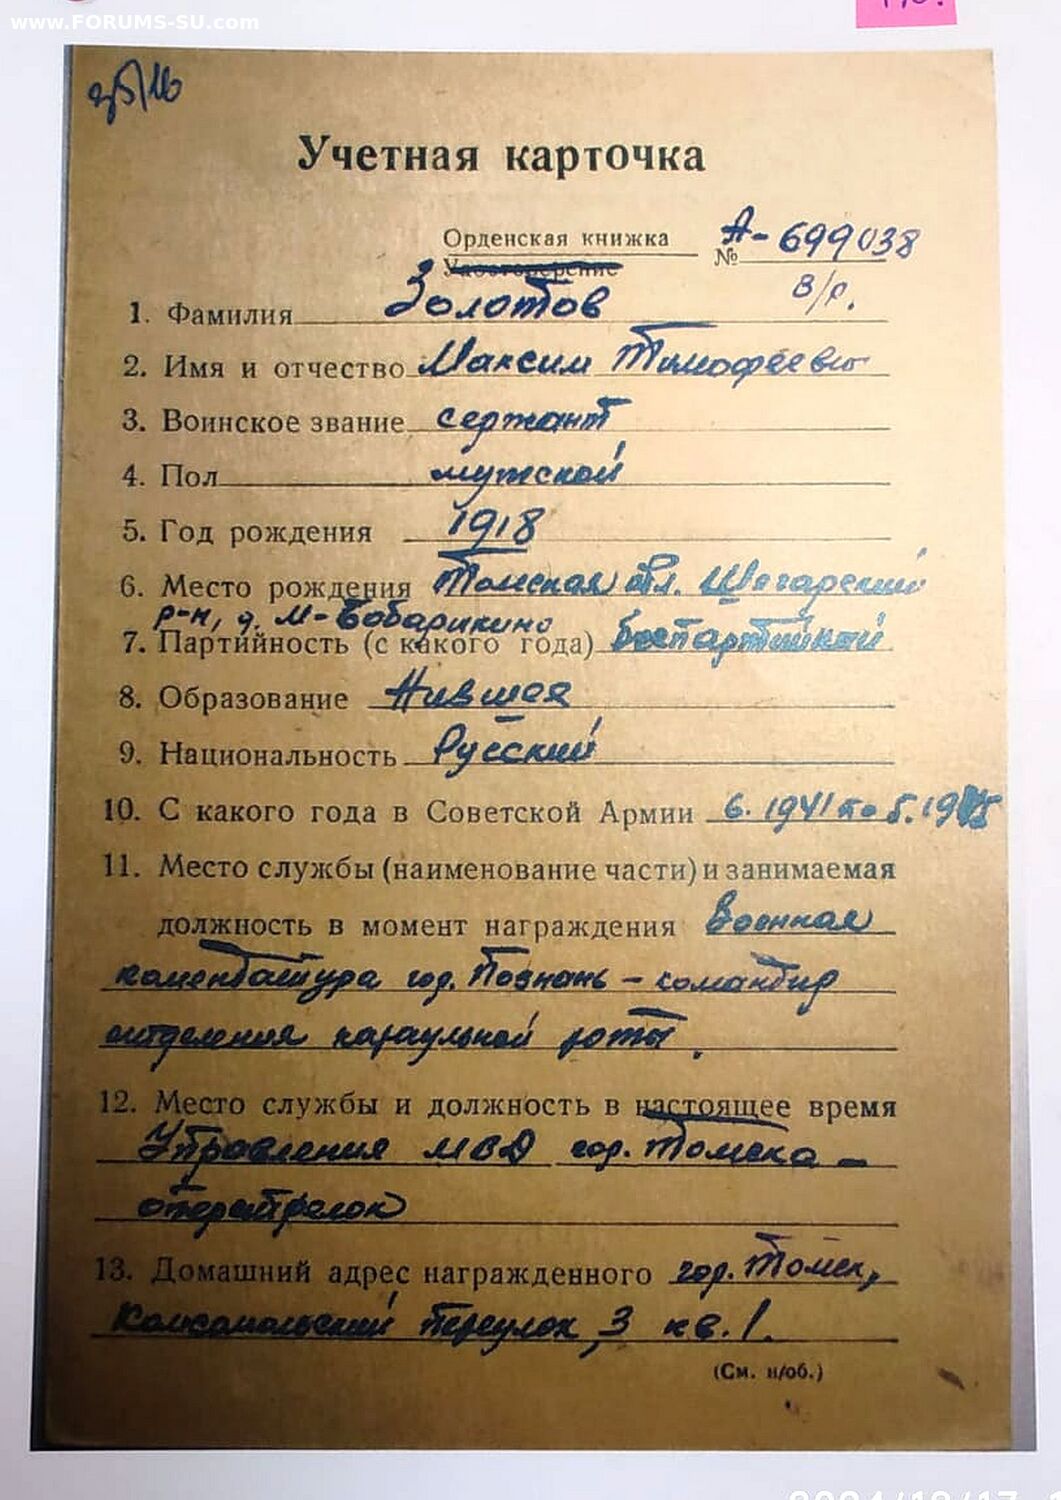 www.FORUMS-SU.com
Учетная карточка
Орденская книжка
Удостоверение
№ А-699038
в/р.
1. Фамилия Золотов
2. Имя и отчество Максим Тимофеевич
3. Воинское звание сержант
4. Пол мужской
5. Год рождения 1918
6. Место рождения Томская обл. Шегарский
р-н, д. М-Бобарикино
7. Партийность (с какого года) беспартийный
8. Образование Низшее
9. Национальность Русский
10. С какого года в Советской Армии 6. 1941 по 5. 1945
11. Место службы (наименование части) и занимаемая
должность в момент награждения Военная
комендатура гор. Познань – командир
отделения караульной роты.
12. Место службы и должность в настоящее время
Управления МВД гор. Томска –
13. Домашний адрес награжденного гор. Томск,
Комсомольский переулок, 3 кв. 1.
(См. н/об.)